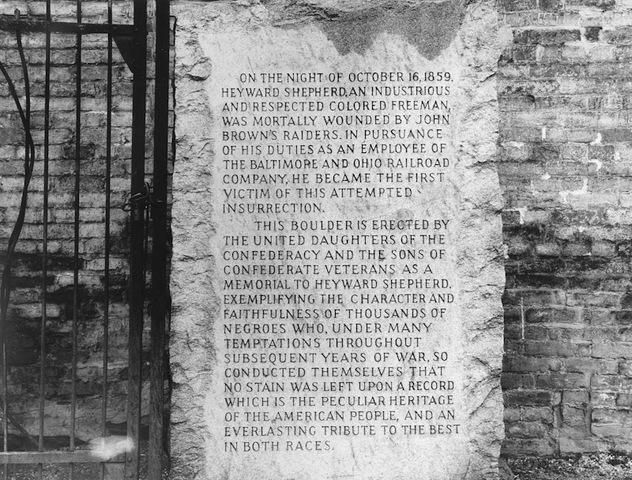 ON THE NIGHT OF OCTOBER 16, 1859,
HEYWARD SHEPHERD, AN INDUSTRIOUS
AND RESPECTED COLORED FREEMAN,
WAS MORTALLY WOUNDED BY JOHN
BROWN'S RAIDERS. IN PURSUANCE
OF HIS DUTIES AS AN EMPLOYEE OF
THE BALTIMORE AND OHIO RAILROAD
COMPANY, HE BECAME THE FIRST
VICTIM OF THIS ATTEMPTED
INSURRECTION.
THIS BOULDER IS ERECTED BY
THE UNITED DAUGHTERS OF THE
CONFEDERACY AND THE SONS OF
CONFEDERATE VETERANS AS A
MEMORIAL TO HEYWARD SHEPHERD,
EXEMPLIFYING THE CHARACTER AND
FAITHFULNESS OF THOUSANDS OF
NEGROES WHO, UNDER MANY
TEMPTATIONS THROUGHOUT
SUBSEQUENT YEARS OF WAR, SO
CONDUCTED THEMSELVES THAT
NO STAIN WAS LEFT UPON A RECORD
WHICH IS THE PECULIAR HERITAGE
OF THE AMERICAN PEOPLE, AND AN
EVERLASTING TRIBUTE TO THE BEST
IN BOTH RACES.